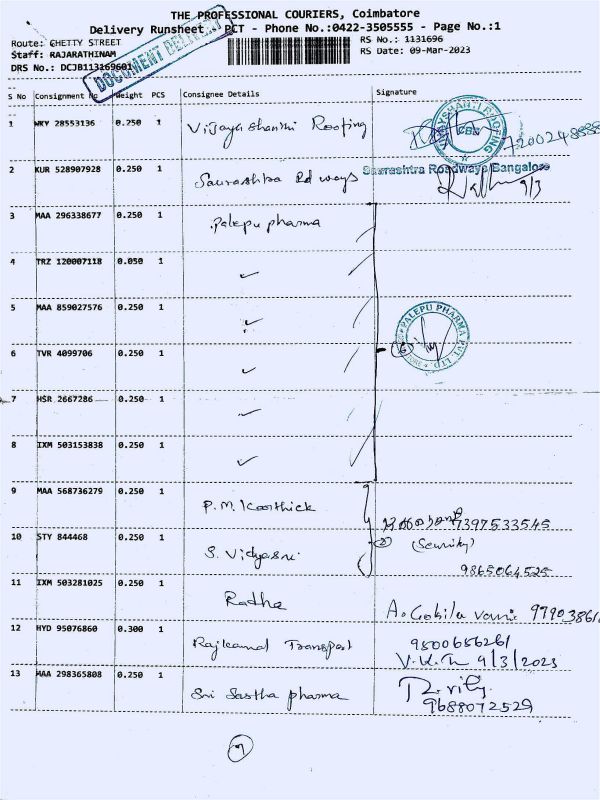 THE PROFESSIONAL COURIERS, Coimbatore
Delivery Runsheet PCT - Phone No.:0422-3505555 - Page No.:1
Route: GHETTY STREET
RS No.: 1131696
Staff: RAJARATHINAM
RS Date: 09-Mar-2023
DRS No.: DCJB113169601
DOCUMENT DELIVERY
S No Consignment No Weight PCS Consignee Details Signature
1 WKY 28553136 0.250 1 Vijaya shanthi Roofing
2 KUR 528907928 0.250 1 Saurashtra Rd ways Saurashtra Roadways Bangalore 9/3
3 MAA 296338677 0.250 1 Palepu pharma
4 TRZ 120007118 0.050 1 ✓
5 MAA 859027576 0.250 1 ✓
PALEPU PHARMA PVT. LTD.
6 TVR 4099706 0.250 1 ✓
7 HSR 2667286 0.250 1 ✓
8 IXM 503153838 0.250 1 ✓
9 MAA 568736279 0.250 1 P.M. Karthick 7397533545
10 STY 844468 0.250 1 S. Vidyasri (Security)
9865064525
11 IXM 503281025 0.250 1 Radha A. Gokila vani
12 HYD 95076860 0.300 1 Rajkamal Transport 9500656261
V.K.M 9/3/2023
13 MAA 298365808 0.250 1 Sri Sastha pharma
9688072529